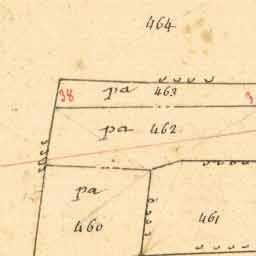 464
38 pa 463
pa 462
pa
460 461